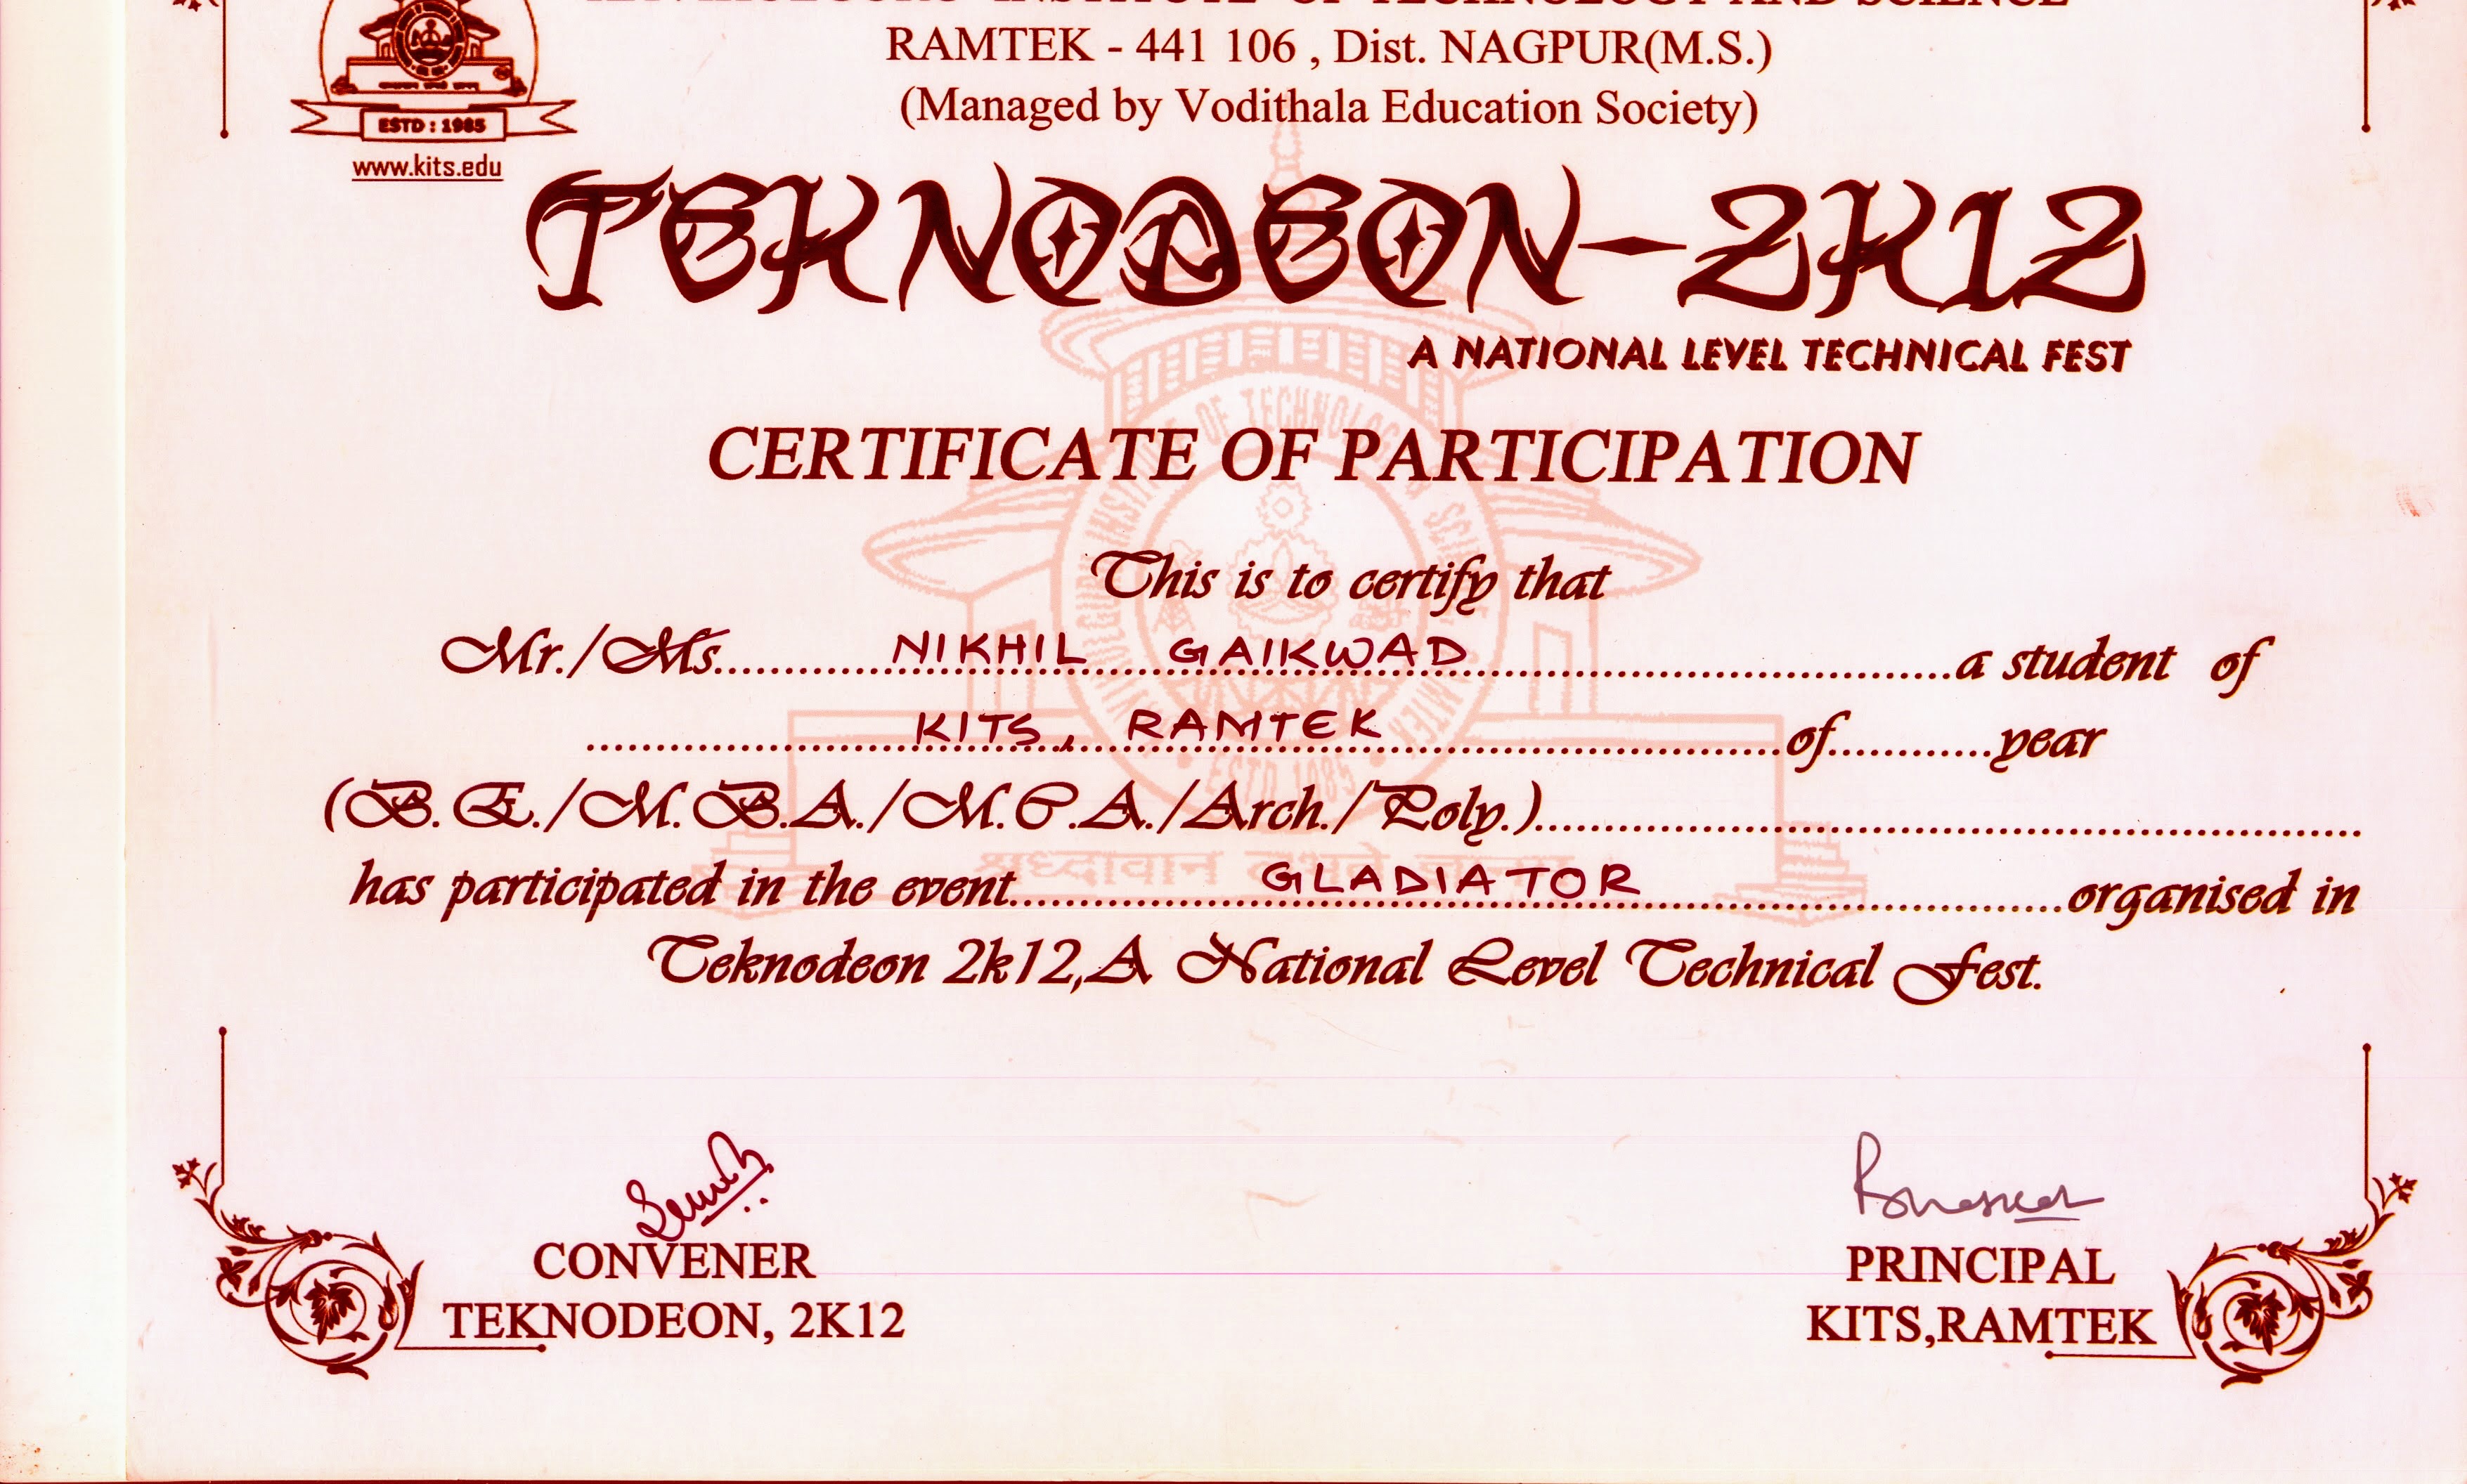 INSTITUTE OF TECHNOLOGY AND SCIENCE
RAMTEK - 441 106 , Dist. NAGPUR(M.S.)
(Managed by Vodithala Education Society)
ESTD : 1985
www.kits.edu
TEKNODEON-2K12
A NATIONAL LEVEL TECHNICAL FEST
CERTIFICATE OF PARTICIPATION
This is to certify that
Mr./Ms.....NIKHIL GAIKWAD.....a student of
.....KITS, RAMTEK.....of............year
(B.E./M.B.A./M.C.A./Arch./Poly.)..........
has participated in the event.....GLADIATOR.....organised in
Teknodeon 2k12,A National Level Technical Fest.
ESTD 1985
CONVENER
TEKNODEON, 2K12
PRINCIPAL
KITS,RAMTEK